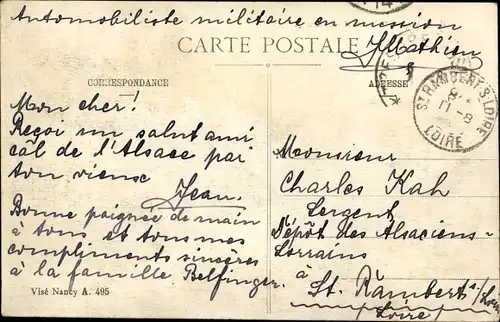 Automobiliste militaire en mission
J Mathieu
CARTE POSTALE
CORRESPONDANCE
ADRESSE
Mon cher!
Reçoi un salut ami
cal de l'Alsace pai
ton viense
Jean.
Bonne poignée de main
à tous et tous mes
compliments sincères
à la famille Belfinger.
Visé Nancy A. 495
ST RAMBERT S. LOIRE
11-8
LOIRE
Monsieur
Charles Kah
Sergent
Dépôt des Alsaciens-
Lorrains
à
St. Rambert s/Loire
Loire